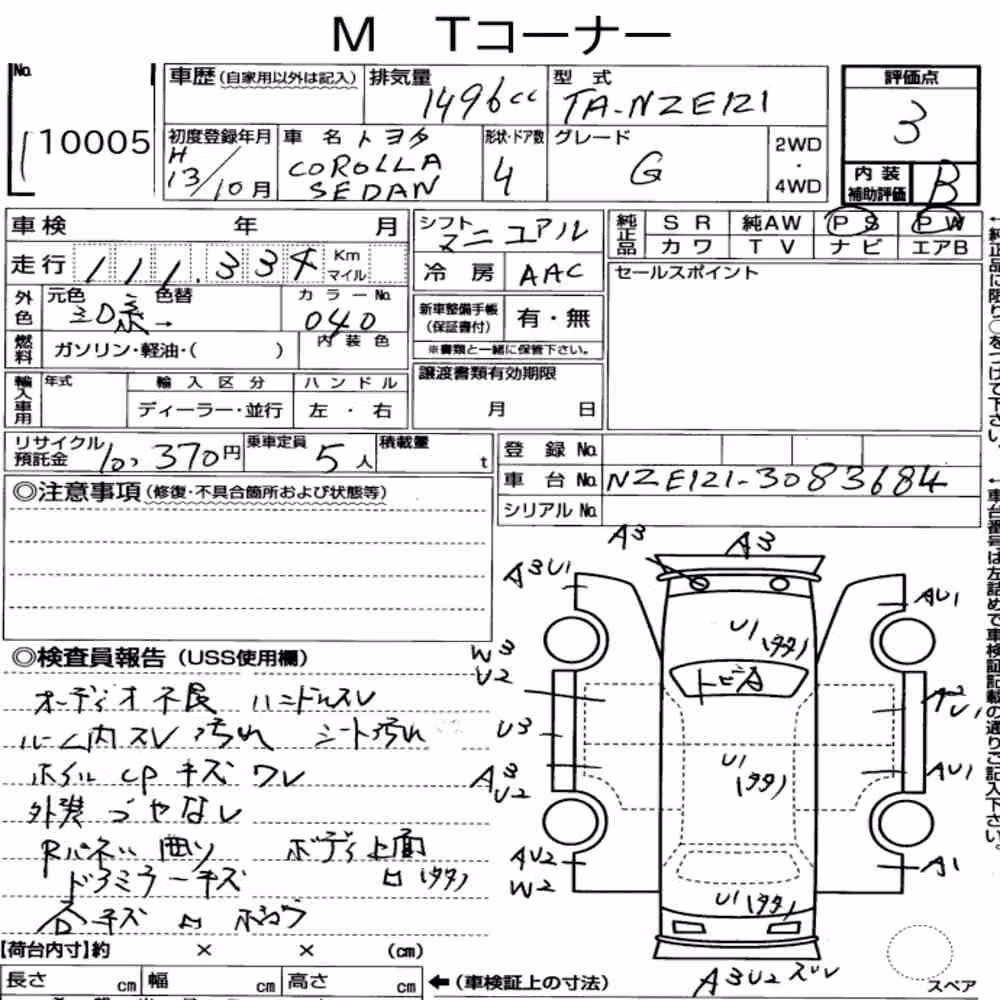 M Tコーナー
No.
10005
車歴(自家用以外は記入)
排気量
1496cc
型式
TA-NZE121
評価点
3
初度登録年月
H
13/10月
車名 トヨタ
COROLLA
SEDAN
形状・ドア数
4
グレード
G
2WD
・
4WD
内装
補助評価
B
車検 年 月
走行 111,334 Km
マイル
シフト
マニュアル
冷房 AAC
純正品
SR 純AW PS PW
カワ TV ナビ エアB
セールスポイント
外色
元色 色替
系→
カラーNo.
040
燃料
ガソリン・軽油・( )
内装色
新車整備手帳
(保証書付)
有・無
※書類と一緒に保管下さい。
輸入車用
年式
輸入区分
ディーラー・並行
ハンドル
左・右
譲渡書類有効期限
月 日
リサイクル
預託金
10,370円
乗車定員
5人
積載量
t
登録No.
車台No. NZE121-3083684
シリアルNo.
◎注意事項(修復・不具合箇所および状態等)
◎検査員報告(USS使用欄)
オーディオ不良 ハンドルスレ
ルーム内スレ汚れ シート汚れ
ホイルCPキズワレ
外装ツヤなし
Rパネル凹ソ ボディ上面
ドアミラーキズ
各キズ
【荷台内寸】約 × × (cm)
長さ cm 幅 cm 高さ cm
←(車検証上の寸法)
A3
A3
A3U1
AU1
U1
W3
U2
トビA
A2
U1
U3
U1
AU1
A3
U2
AU2
W2
A1
U1
A3U2ズレ
スペア
←純正品に限り○をつけて下さい。
←車台番号は左詰めで車検証記載の通りご記入下さい。